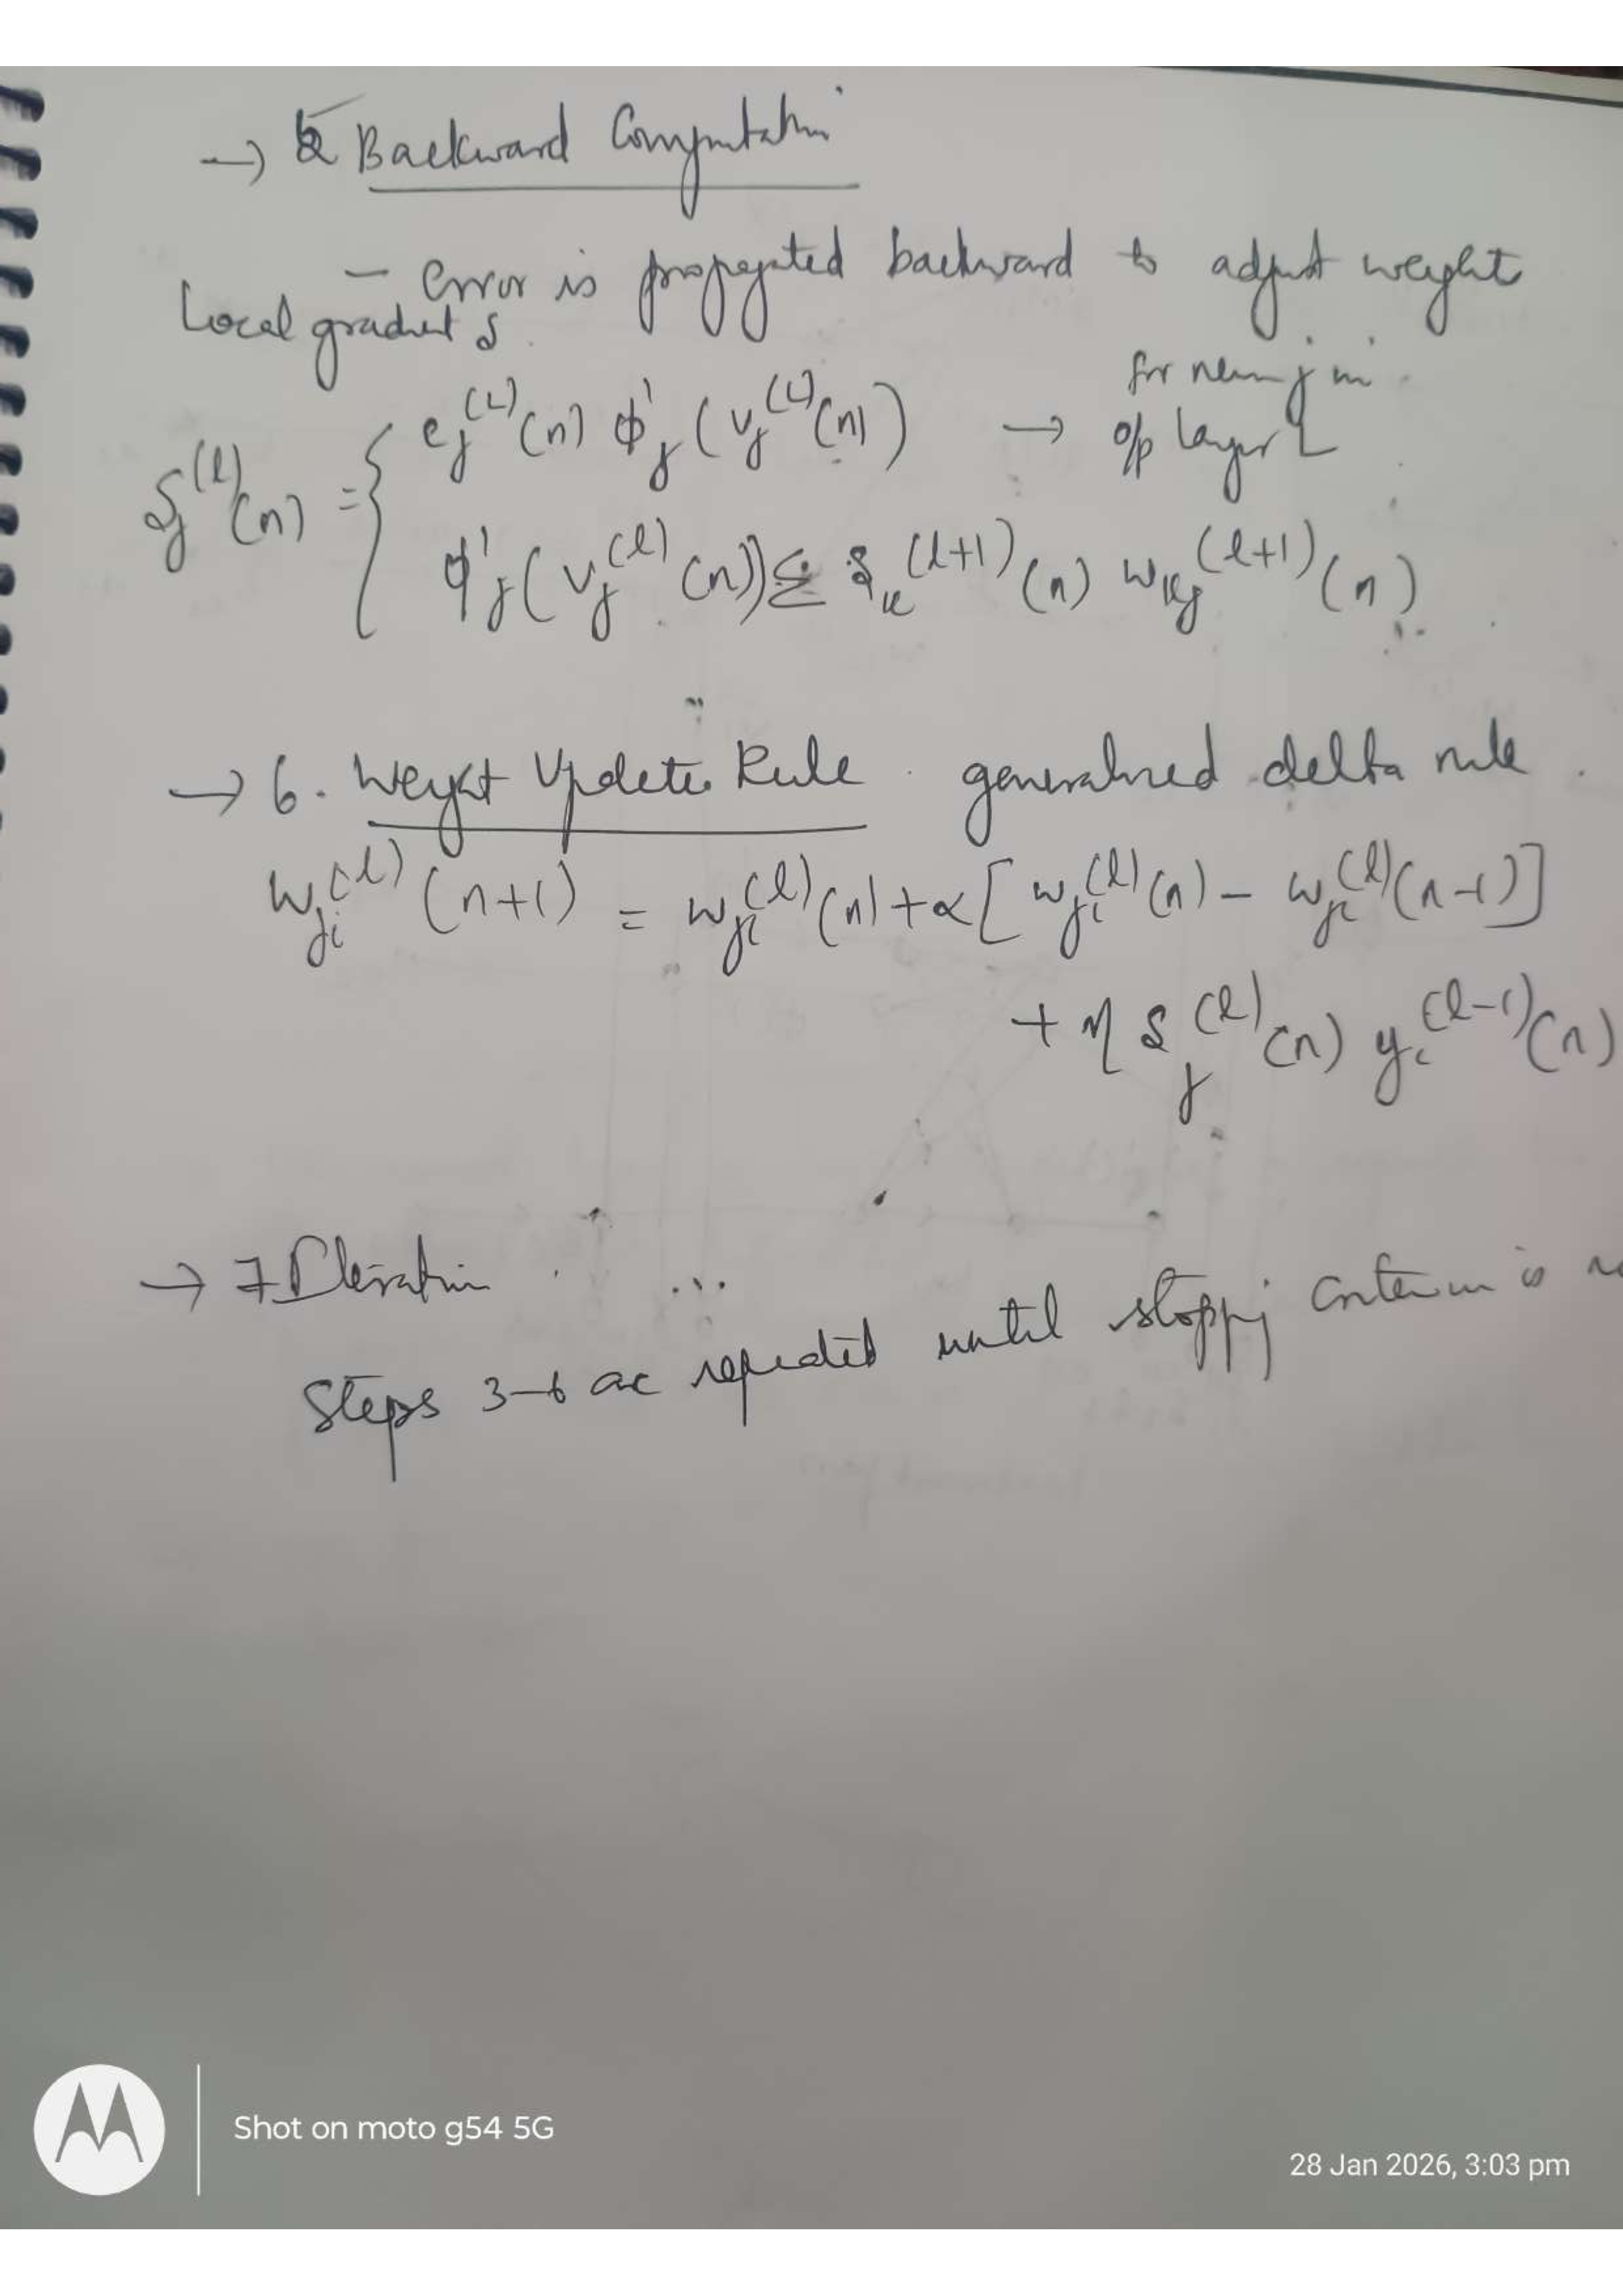 → 5 Backward Computation
– Error is propagated backward to adjust weight
Local gradient δ.
for neuron j in
δj^(l)(n) = { ej^(L)(n) ϕ'j (vj^(L)(n)) → o/p layer L
ϕ'j (vj^(l)(n)) Σ δk^(l+1)(n) wkj^(l+1)(n)
→ 6. Weight Update Rule. generalized delta rule.
wji^(l)(n+1) = wji^(l)(n) + α[wji^(l)(n) – wji^(l)(n-1)]
+ η δj^(l)(n) yi^(l-1)(n)
→ 7 Iteration. ...
Steps 3-6 are repeated until stopping criterion is
Shot on moto g54 5G
28 Jan 2026, 3:03 pm